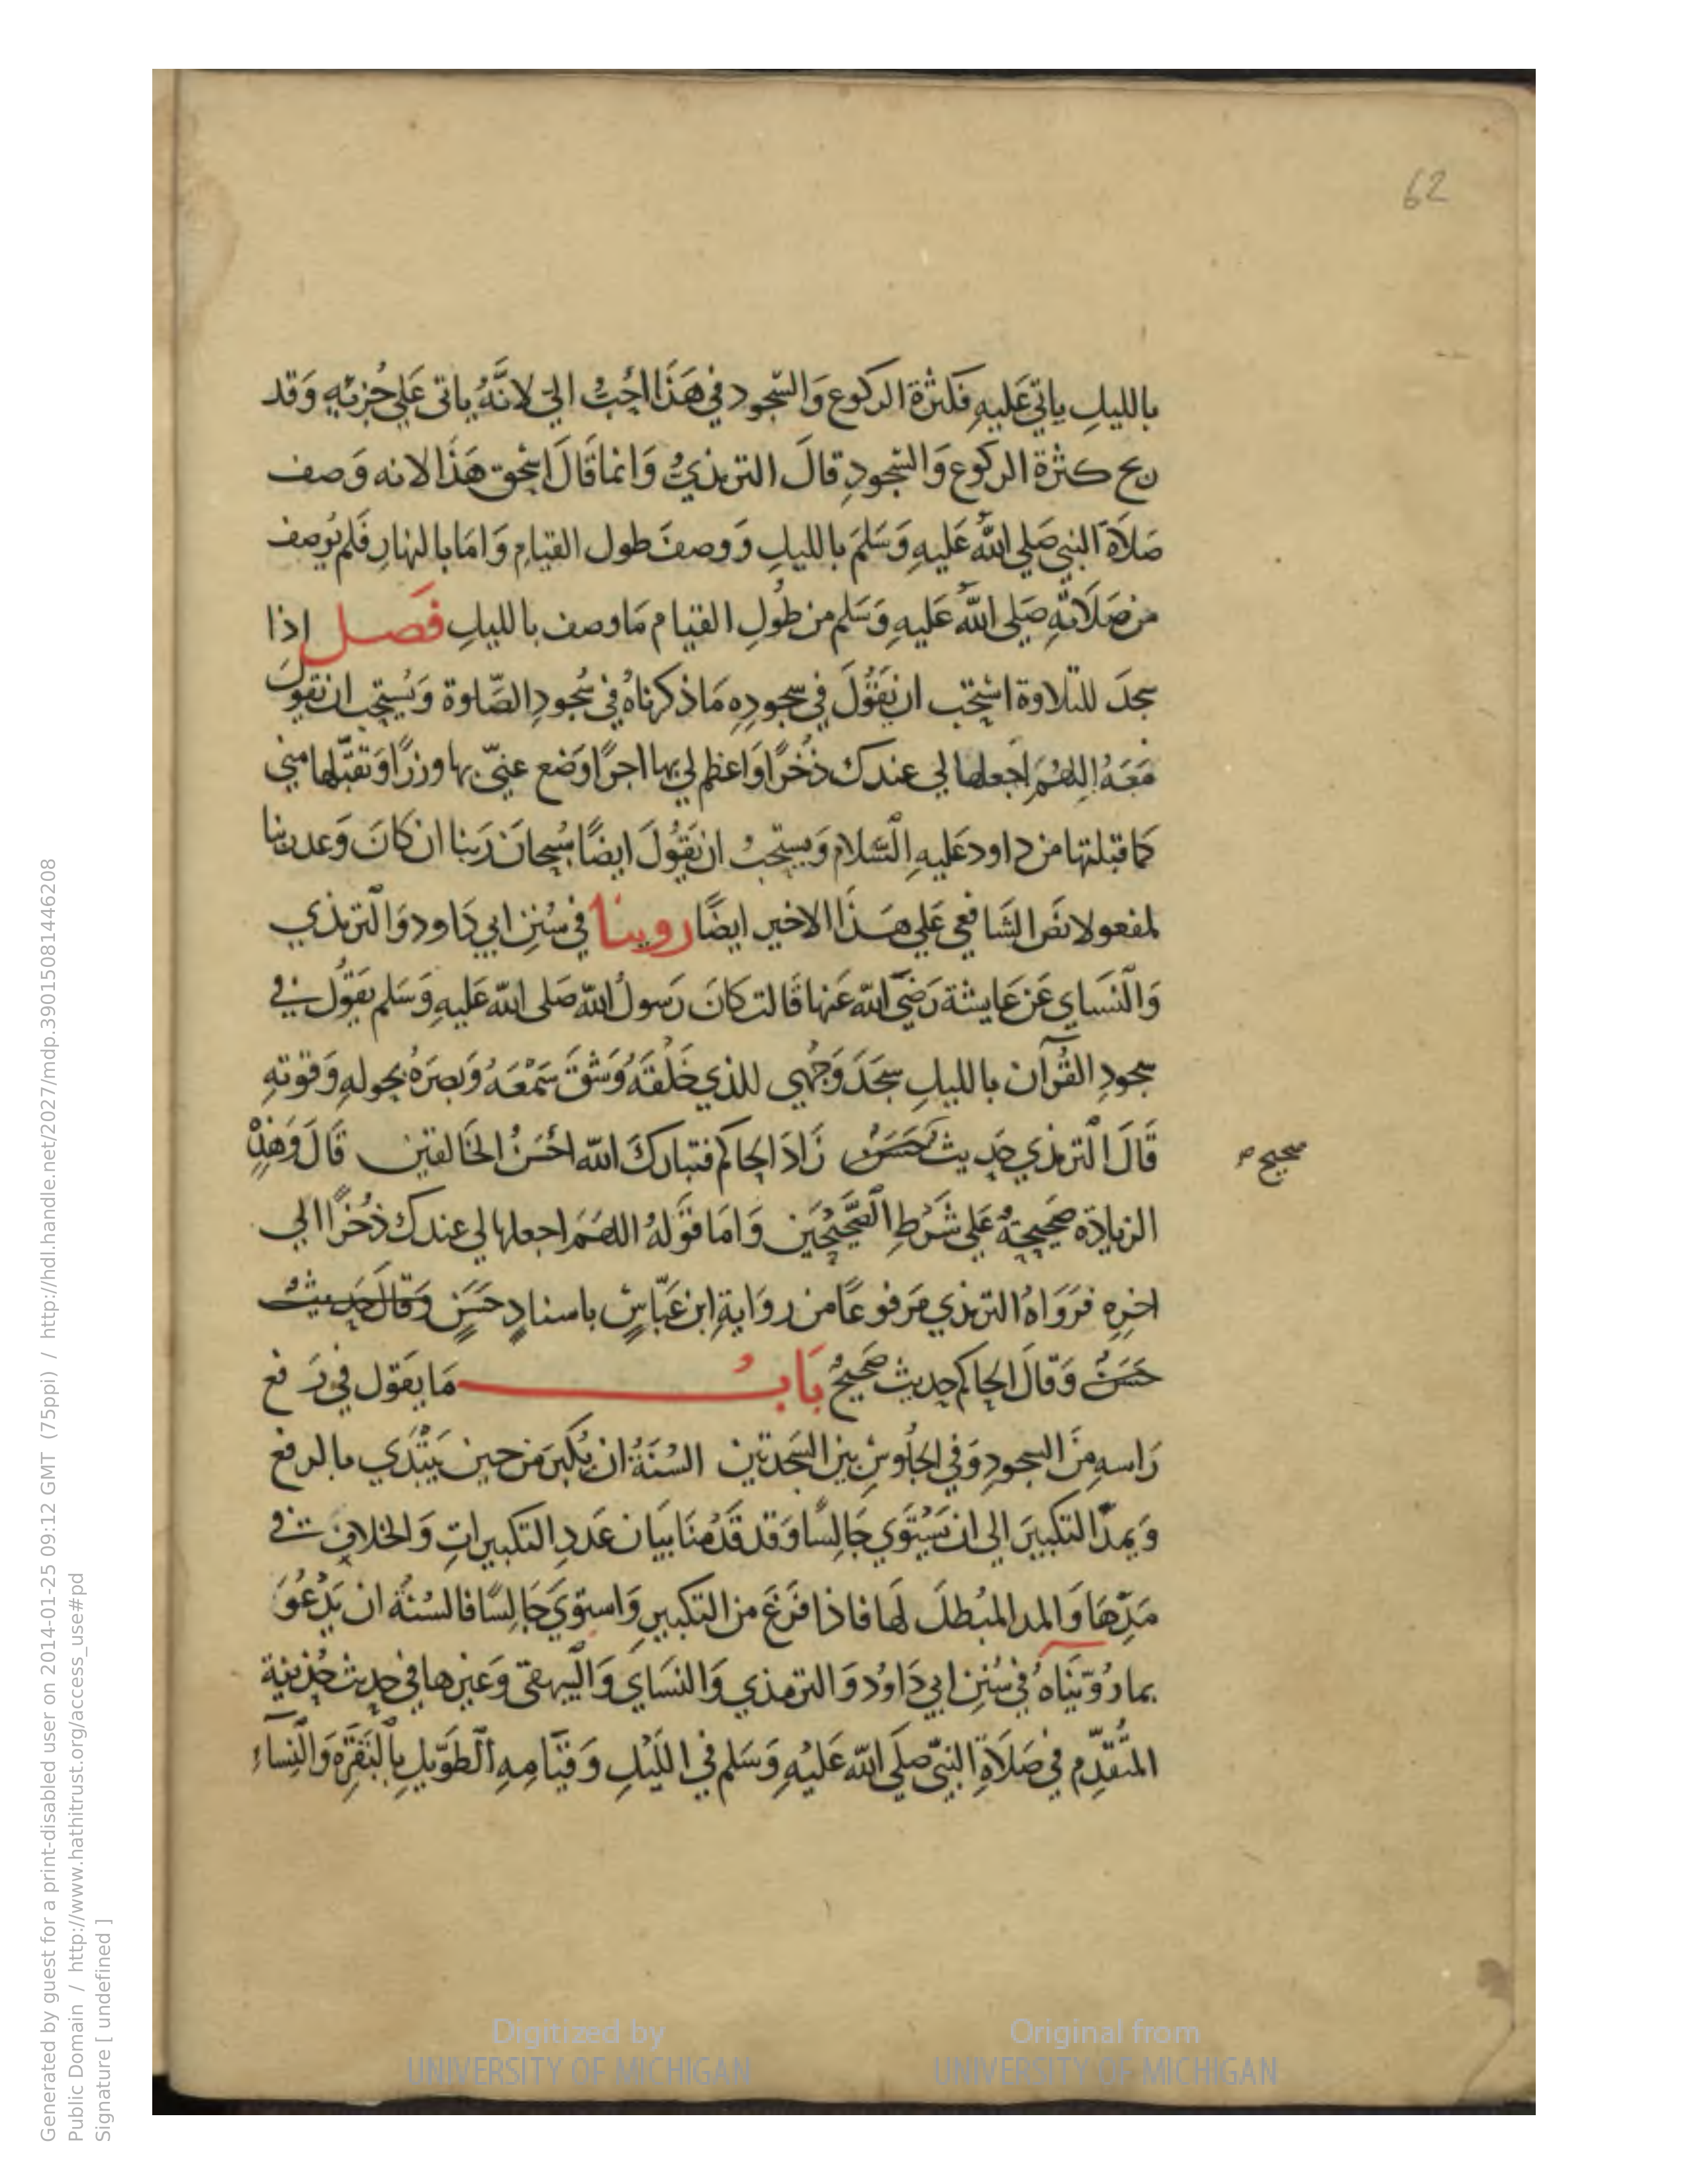 62
بالليلِ ياتي عَليهِ فكثرة الركوع وَالسّجود في هَذَا احَبُّ اليّ لانَّهُ ياتى عَلي حُزبهِ وَقد
ربح كثرة الركوع وَالسّجودِ قالَ الترمذيُّ وَانما قَالَ اسحٰق هَذَا لانه وَصف
صَلاَة النبي صَلي اللّه عَليهِ وَسَلمَ بالليلِ وَوصفَ طول القيامِ وَامَا بالنهارِ فَلم يُوصف
من صَلَاتهِ صَلى اللّه عَليهِ وَسَلم من طُولِ القيام مَا وصف بالليلِ فصــل اذا
سجدَ للتلاوة استحب ان يقُولَ في سجودِه مَا ذكرناهُ في سُجودِ الصَّلوة وَيُستحِبُ ان يقولَ
مَعَهُ اللهُمَ اجعلها لي عندك ذُخرًا وَاعظم لي بها اجرًا وَضع عنيّ بها وزرًا وَتقبّلها مني
كمَا قبلتها من داود عَليهِ السَّلام وَيستحِبُ ان يَقُولَ ايضًا سُبحانَ رَبنا ان كانَ وَعد ربنا
لمفعولا نصَ الشَافعي عَلي هَذَا الاخير ايضًا روينا في سُنِن ابي دَاود وَالترمذي
وَالنسَاي عَن عَايشة رَضيَ اللّه عَنها قَالت كانَ رَسولُ اللّه صَلى اللّه عَليهِ وَسَلم يقوُل في
سجودِ القُرآن بالليلِ سجَدَ وَجهي للذي خَلقَهُ وَشقَ سَمْعَهُ وَبصَرَهُ بحولهِ وَقوتهِ
قَالَ الترمذي حَديث حَسَنٌ زَادَ الحاكم فتباركَ اللّه احْسَنُ الخَالقين قَالَ وَهذِهْ
صحيح صح
الزيادَة صَحيحةٌ عَلي شَرْطِ الصَّحيْحَين وَامَا قَولهُ اللهُمَ اجعلها لي عندك ذُخرًا الي
اخرِه فرَوَاهُ الترمذي مَرفوعًا من روَايةِ ابن عَبَّاسٍ باسنادٍ حَسَنٍ وَقالَ حَديثٌ
حَسَنٌ وَقالَ الحاكم حديث صَحيحٌ بَابُ مَا يقول في رَفع
رَاسهِ مِنَ السجودِ وَفي الجلُوسِ بين السَجدتين السُنَةُ ان يُكبرَ من حين يَبْتدي بالرفع
وَيمدّ التكبيَر الى ان يَسْتَوي جَالِسًا وَقد قَدَّمنَا بيَان عَدَدِ التكبيراتِ وَالخلافِ في
مَدِّهَا وَالمد المبُطلَ لهَا فاذا فَرَغَ من التكبيرِ وَاستوَي جَالِسًا فالسُنَّة ان يَدْعُوَ
بما رُوّينَاهُ في سُنِن ابي دَاوُد وَالترمذي وَالنسَاي وَالبيهقى وَغيرها في حديث حُذيفة
المتُقدِّم في صَلاَةِ النبيّ صَلَي اللّه عَليْهِ وَسَلم في الليْلِ وَقيَامِهِ الطَوّيلِ بِالبَقَرَّةِ وَالنِّسآءِ
Digitized by
UNIVERSITY OF MICHIGAN
Original from
UNIVERSITY OF MICHIGAN
Generated by guest for a print-disabled user on 2014-01-25 09:12 GMT (75ppi) / http://hdl.handle.net/2027/mdp.39015081446208
Public Domain / http://www.hathitrust.org/access_use#pd
Signature [ undefined ]